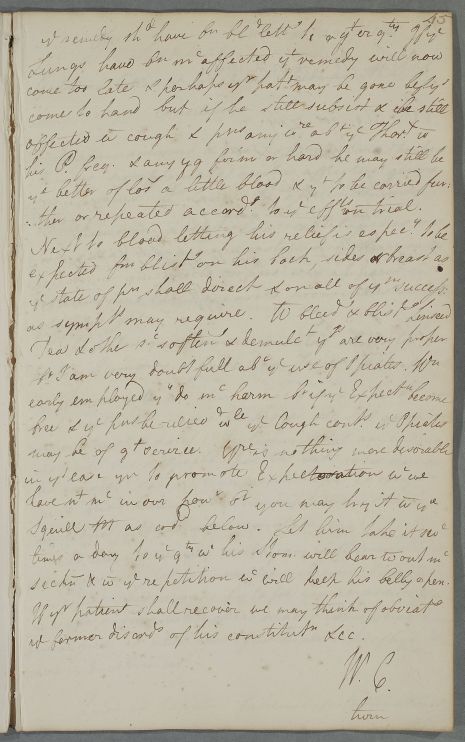 45
yr remedy shd have bn bld lettg he n gt er qty If ye
Lungs have bn mc affected yt remedy will now
come too late & perhaps yr patt may be gone befr ys
come to hand but if he still subsist & is still
affected wt cough & pn any wre abt ye Thorx wt
his P. freq. & any yg firm or hard he may still be
ye better of losg a little blood & yt to be carried fur-
-ther or repeated accordg to ye effts on trial.
Next to blood letting his relief is especy to be
expected fm blistrs on his back, sides or breast as
ye state of pn shall direct & on all of ym success.
as symptms may require. To bleedg & blistrg Linseed
Tea & other softeng & demulct ys are very proper
bt I am very doubtfull abt ye use of Opiates. Wn
early employed yy do mc harm bt if ye Expectn become
free & ye pns be relieved wle ye Cough conts ye Opiates
may be of gt service. Yre is nothing more desirable
in ys case yn to promote Expectoration wc we
have nt mc in our powr bt you may try it wt ye
Squill Mt as cod below. Let him take it sevl
times a day to ye qty wc his Stom. will bear wtout mc
sickn & wt ye repetition wc will keep his belly open.
If yr patient shall recover we may think of obviatg
ye former disords of his constitutn &c.
W. C.
turn